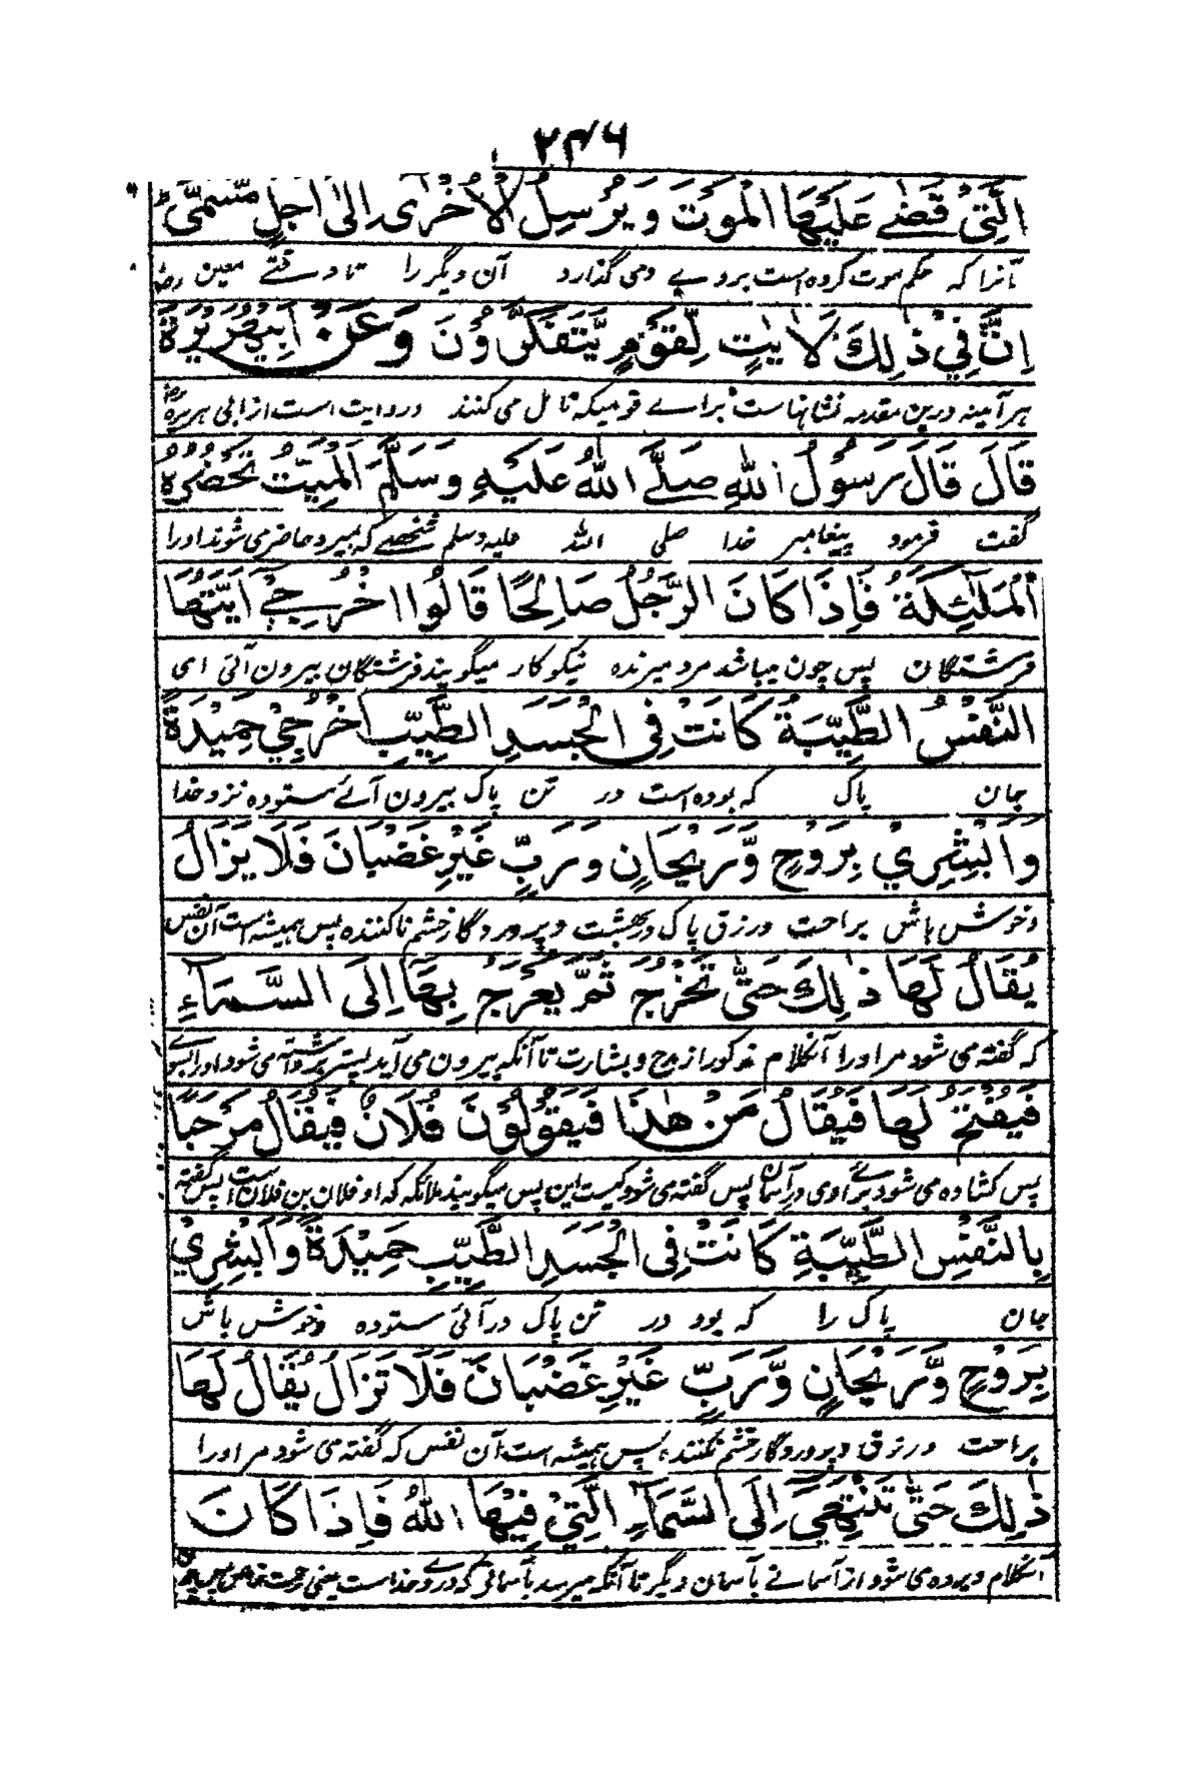 ۲۳۶
الَّتِيْ قَضٰے عَلَيْهَا الْمَوْتَ وَيُرْسِلُ الْاُخْرٰى اِلٰى اَجَلٍ مُّسَمًّى
آنرا کہ حکم موت کردہ است بروے ومی گذارد آن دیگر را تا وقتے معین
اِنَّ فِيْ ذٰلِكَ لَاٰيٰتٍ لِّقَوْمٍ يَّتَفَكَّرُوْنَ وَعَنْ اَبِيْهُرَيْرَةَ
ہر آئینہ درین مقدمہ نشانہاست براے قومیکہ تامل می کنند وروایت است از ابی ہریرہ
قَالَ قَالَ رَسُوْلُ اللهِ صَلَّے اللهُ عَلَيْهِ وَسَلَّمَ الْمَيِّتُ تَحْضُرُهُ
گفت فرمود پیغامبر خدا صلی اللہ علیہ وسلم شخصے کہ بمیرد حاضر می شوند اورا
الْمَلٰٓئِكَةُ فَاِذَا كَانَ الرَّجُلُ صَالِحًا قَالُوا اخْرُجِيْ اَيَّتُهَا
فرشتگان پس چون میباشد مرد میرندہ نیکو کار میگویند فرشتگان بیرون آئی ای
النَّفْسُ الطَّيِّبَةُ كَانَتْ فِى الْجَسَدِ الطَّيِّبِ اخْرُجِيْ حَمِيْدَةً
جان پاک کہ بودہ است در تن پاک بیرون آئے ستودہ نزد خدا
وَاَبْشِرِيْ بِرَوْحٍ وَّرَيْحَانٍ وَرَبٍّ غَيْرِ غَضْبَانَ فَلَا يَزَالُ
وخوش باش براحت ورزق پاک در بہشت وپروردگار خشم ناکنندہ پس ہمیشہ است آن نفس
يُقَالُ لَهَا ذٰلِكَ حَتّٰى تَخْرُجَ ثُمَّ يُعْرَجُ بِهَا اِلَى السَّمَآءِ
کہ گفتہ می شود مر اورا آنکلام مذکور از مدح وبشارت تا آنکہ بیرون می آید پستر برداشتہ می شود اورا بسوے
فَيُفْتَحُ لَهَا فَيُقَالُ مَنْ هٰذَا فَيَقُوْلُوْنَ فُلَانٌ فَيُقَالُ مَرْحَبًا
پس کشادہ می شود براے وی در آسمان پس گفتہ می شود کیست این پس میگویند ملائکہ کہ او فلان بن فلان است پس گفتہ
بِالنَّفْسِ الطَّيِّبَةِ كَانَتْ فِى الْجَسَدِ الطَّيِّبِ حَمِيْدَةً وَاَبْشِرِيْ
جان پاک را کہ بود در تن پاک درآئی ستودہ وخوش باش
بِرَوْحٍ وَّرَيْحَانٍ وَّرَبٍّ غَيْرِ غَضْبَانَ فَلَا تَزَالُ يُقَالُ لَهَا
براحت ورزق وپروردگار خشم نکنندہ، پس ہمیشہ است آن نفس کہ گفتہ می شود مر اورا
ذٰلِكَ حَتّٰى تَنْتَهِيَ اِلَى السَّمَآءِ الَّتِيْ فِيْهَا اللهُ فَاِذَا كَانَ
آنکلام وبردہ می شود از آسمانے بآسمان دیگر تا آنکہ میرسد بآسمانی کہ در وے خداست یعنی رحمت خاص